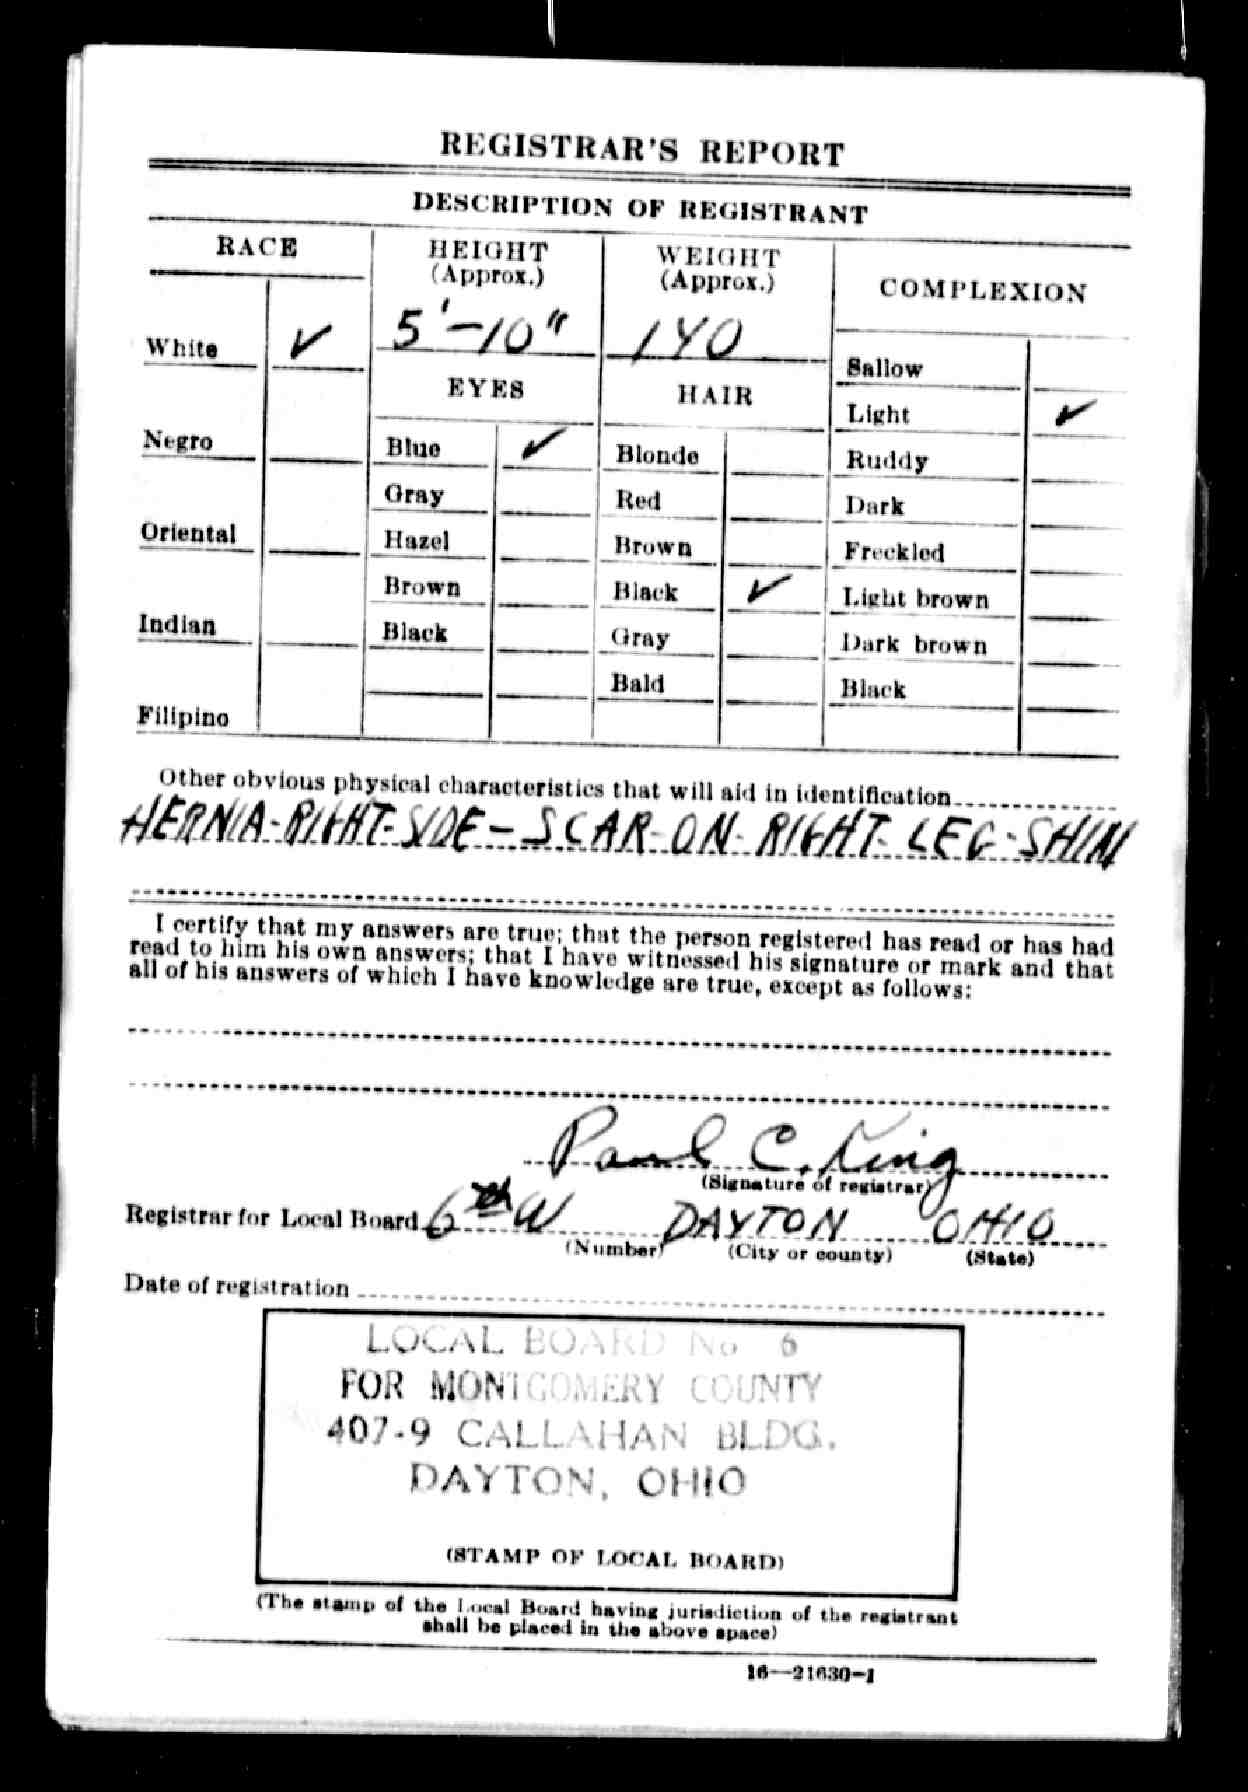 REGISTRAR'S REPORT
DESCRIPTION OF REGISTRANT
RACE
HEIGHT
(Approx.)
WEIGHT
(Approx.)
COMPLEXION
5'-10"
140
White ✓
Sallow
EYES
HAIR
Light ✓
Negro
Blue ✓
Blonde
Ruddy
Gray
Red
Dark
Oriental
Hazel
Brown
Freckled
Brown
Black ✓
Light brown
Indian
Black
Gray
Dark brown
Bald
Black
Filipino
Other obvious physical characteristics that will aid in identification
HERNIA-RIGHT-SIDE-SCAR-ON-RIGHT-LEG-SHIN
I certify that my answers are true; that the person registered has read or has had
read to him his own answers; that I have witnessed his signature or mark and that
all of his answers of which I have knowledge are true, except as follows:
Paul C. King
(Signature of registrar)
Registrar for Local Board 6th W DAYTON OHIO
(Number) (City or county) (State)
Date of registration
LOCAL BOARD No 6
FOR MONTGOMERY COUNTY
407-9 CALLAHAN BLDG.
DAYTON, OHIO
(STAMP OF LOCAL BOARD)
(The stamp of the Local Board having jurisdiction of the registrant
shall be placed in the above space)
16—21630-1